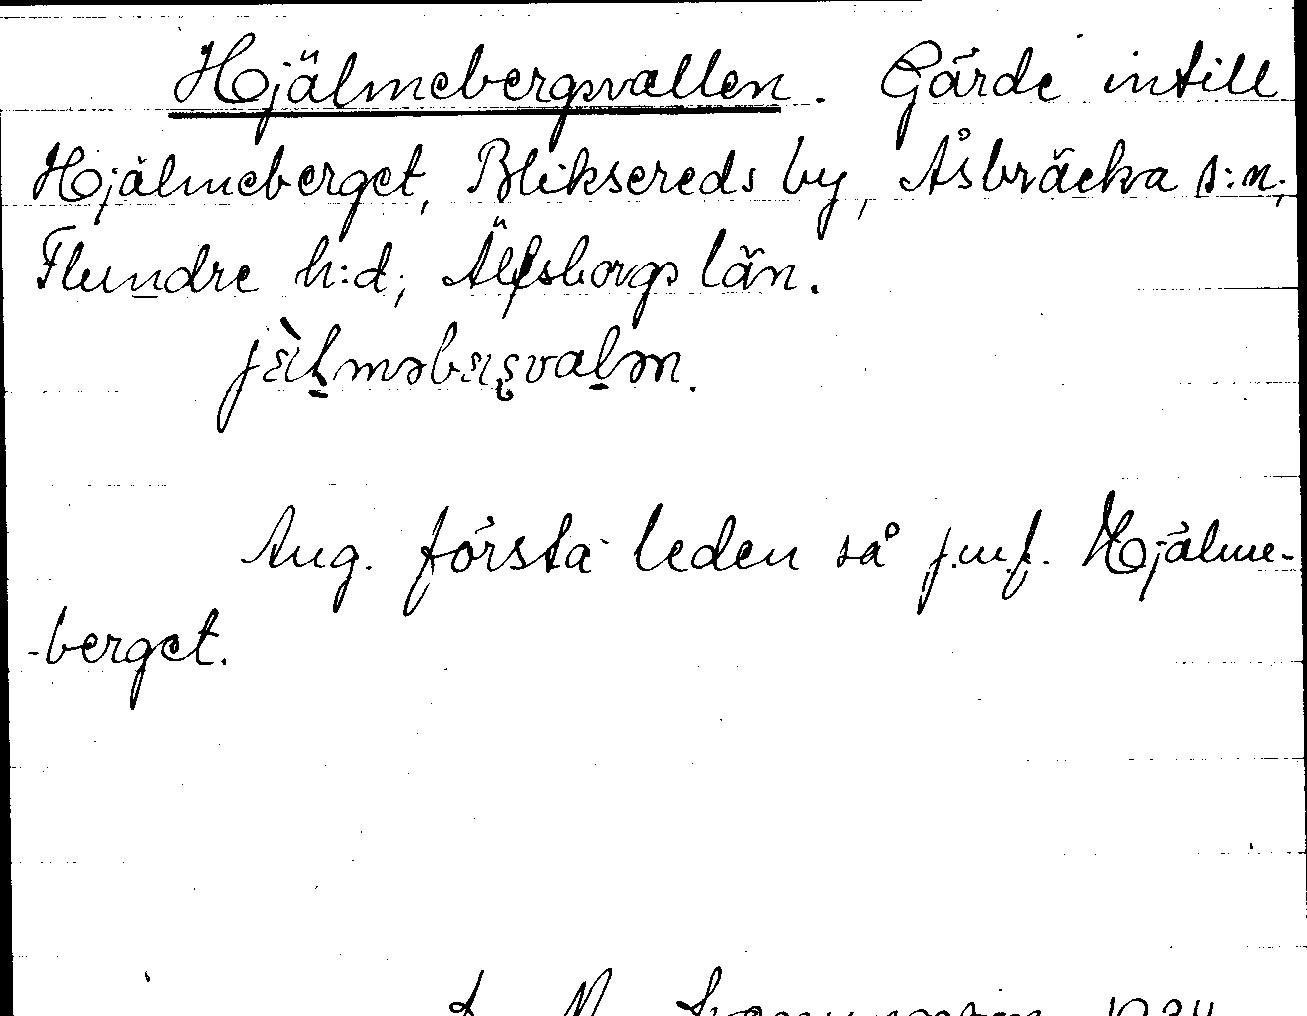 Hjälmebergsvallen. Gärde intill
Hjälmeberget, Bliksereds by, Åsbräcka s:n,
Flundre h:d, Älfsborgs län.
Ang. första leden så j.m.f. Hjälme-
-berget.